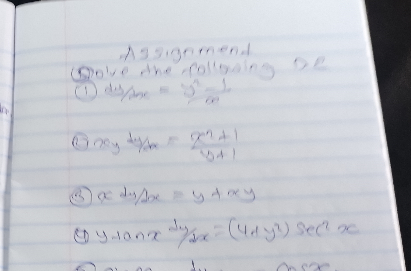 Assignment
Solve the following DE
① dy/dx = y² - 1 / x
② xy dy/dx = x² + 1 / y + 1
③ x dy/dx = y + xy
④ y tan x dy/dx = (4 + y²) sec² x
dy cos x